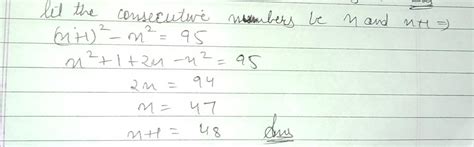 let the consecutive numbers be n and n+1 =>
(n+1)² - n² = 95
n² + 1 + 2n - n² = 95
2n = 94
n = 47
n+1 = 48 Ans